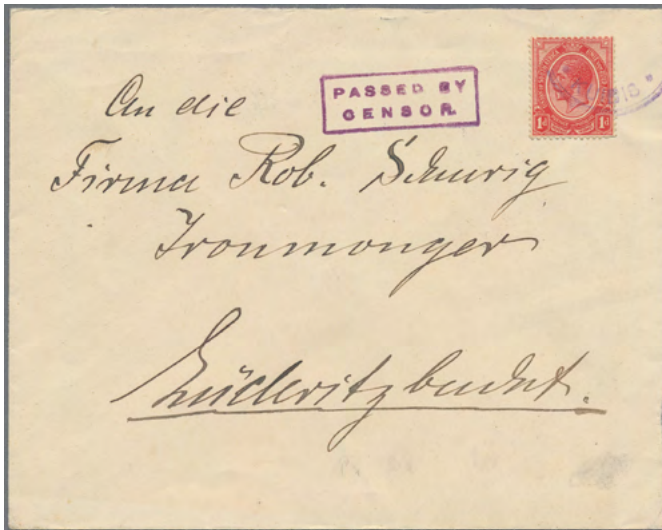 PASSED BY
CENSOR.
1d 1d
An die
Firma Rob. Schurig
Ironmonger
Lüderitzbucht.